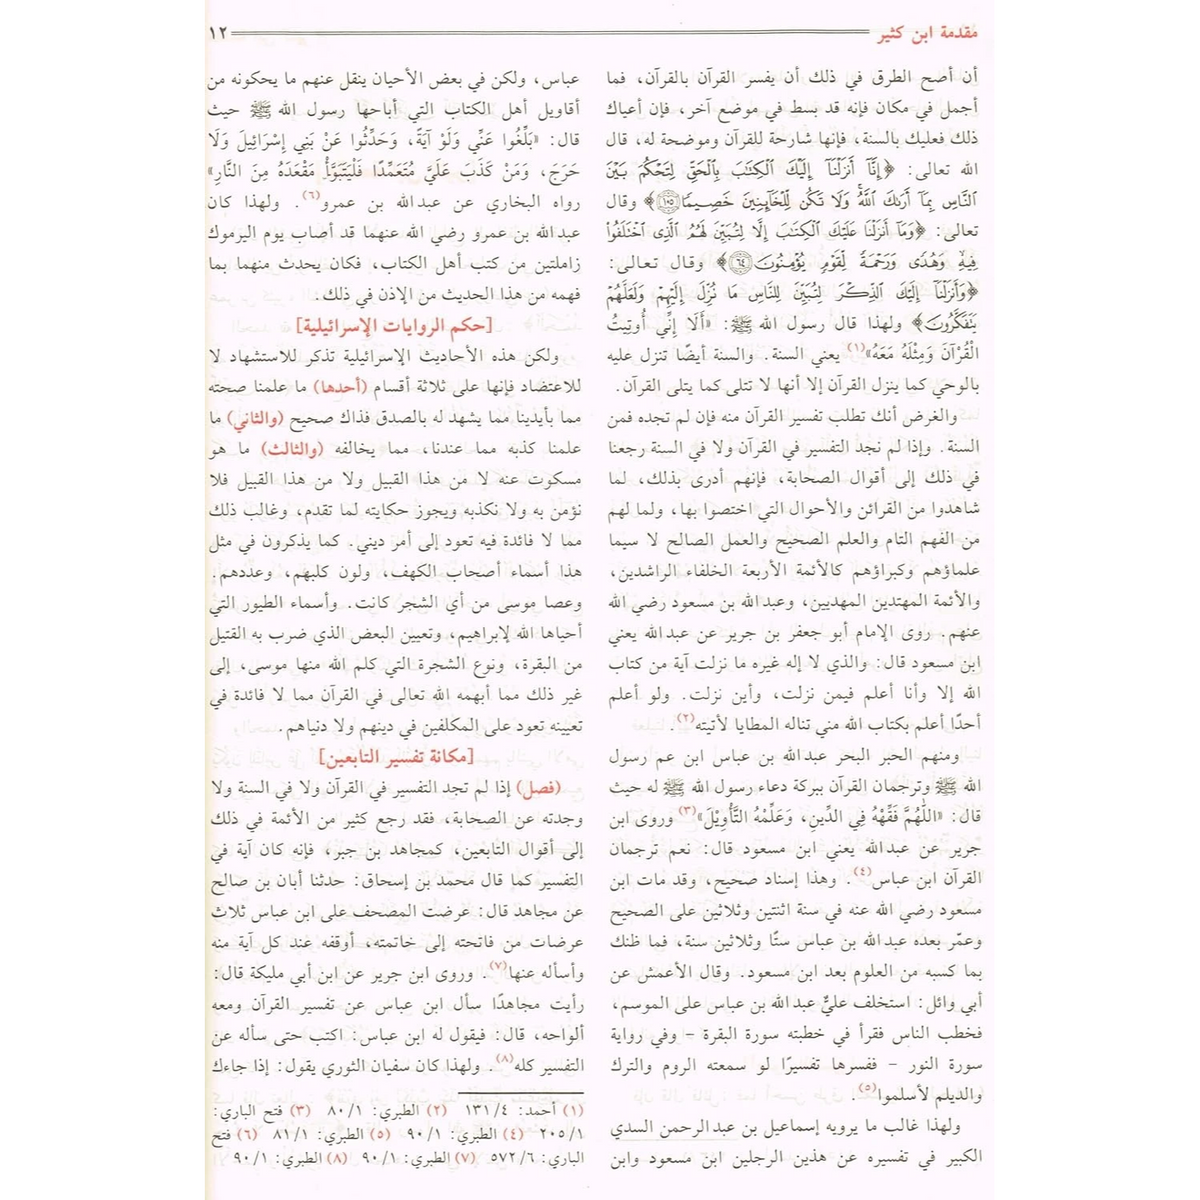 مقدمة ابن كثير
١٢
أن أصح الطرق في ذلك أن يفسر القرآن بالقرآن، فما
أجمل في مكان فإنه قد بسط في موضع آخر، فإن أعياك
ذلك فعليك بالسنة، فإنها شارحة للقرآن وموضحة له، قال
الله تعالى: ﴿إِنَّآ أَنزَلْنَآ إِلَيْكَ ٱلْكِتَٰبَ بِٱلْحَقِّ لِتَحْكُمَ بَيْنَ
ٱلنَّاسِ بِمَآ أَرَىٰكَ ٱللَّهُ ۚ وَلَا تَكُن لِّلْخَآئِنِينَ خَصِيمًا ١٠٥﴾ وقال
تعالى: ﴿وَمَآ أَنزَلْنَا عَلَيْكَ ٱلْكِتَٰبَ إِلَّا لِتُبَيِّنَ لَهُمُ ٱلَّذِى ٱخْتَلَفُوا۟
فِيهِ ۙ وَهُدًى وَرَحْمَةً لِّقَوْمٍ يُؤْمِنُونَ ٦٤﴾ وقال تعالى:
﴿وَأَنزَلْنَآ إِلَيْكَ ٱلذِّكْرَ لِتُبَيِّنَ لِلنَّاسِ مَا نُزِّلَ إِلَيْهِمْ وَلَعَلَّهُمْ
يَتَفَكَّرُونَ﴾ ولهذا قال رسول الله ﷺ: «أَلَا إِنِّي أُوتِيتُ
الْقُرْآنَ وَمِثْلَهُ مَعَهُ»(١) يعني السنة. والسنة أيضًا تنزل عليه
بالوحي كما ينزل القرآن إلا أنها لا تتلى كما يتلى القرآن.
والغرض أنك تطلب تفسير القرآن منه فإن لم تجده فمن
السنة. وإذا لم نجد التفسير في القرآن ولا في السنة رجعنا
في ذلك إلى أقوال الصحابة، فإنهم أدرى بذلك، لما
شاهدوا من القرائن والأحوال التي اختصوا بها، ولما لهم
من الفهم التام والعلم الصحيح والعمل الصالح لا سيما
علماؤهم وكبراؤهم كالأئمة الأربعة الخلفاء الراشدين،
والأئمة المهتدين المهديين، وعبدالله بن مسعود رضي الله
عنهم. روى الإمام أبو جعفر بن جرير عن عبدالله يعني
ابن مسعود قال: والذي لا إله غيره ما نزلت آية من كتاب
الله إلا وأنا أعلم فيمن نزلت، وأين نزلت. ولو أعلم
أحدًا أعلم بكتاب الله مني تناله المطايا لأتيته(٢).
ومنهم الحبر البحر عبدالله بن عباس ابن عم رسول
الله ﷺ وترجمان القرآن ببركة دعاء رسول الله ﷺ له حيث
قال: «اللَّهُمَّ فَقِّهْهُ فِي الدِّينِ، وَعَلِّمْهُ التَّأْوِيْلَ»(٣) وروى ابن
جرير عن عبدالله يعني ابن مسعود قال: نعم ترجمان
القرآن ابن عباس(٤). وهذا إسناد صحيح، وقد مات ابن
مسعود رضي الله عنه في سنة اثنتين وثلاثين على الصحيح
وعمّر بعده عبدالله بن عباس ستًّا وثلاثين سنة، فما ظنك
بما كسبه من العلوم بعد ابن مسعود. وقال الأعمش عن
أبي وائل: استخلف عليٌّ عبدالله بن عباس على الموسم،
فخطب الناس فقرأ في خطبته سورة البقرة – وفي رواية
سورة النور – ففسرها تفسيرًا لو سمعته الروم والترك
والديلم لأسلموا(٥).
ولهذا غالب ما يرويه إسماعيل بن عبدالرحمن السدي
الكبير في تفسيره عن هذين الرجلين ابن مسعود وابن
عباس، ولكن في بعض الأحيان ينقل عنهم ما يحكونه من
أقاويل أهل الكتاب التي أباحها رسول الله ﷺ حيث
قال: «بَلِّغُوا عَنِّي وَلَوْ آيَةً، وَحَدِّثُوا عَنْ بَنِي إِسْرَائِيلَ وَلَا
حَرَجَ، وَمَنْ كَذَبَ عَلَيَّ مُتَعَمِّدًا فَلْيَتَبَوَّأْ مَقْعَدَهُ مِنَ النَّارِ»
رواه البخاري عن عبدالله بن عمرو(٦). ولهذا كان
عبدالله بن عمرو رضي الله عنهما قد أصاب يوم اليرموك
زاملتين من كتب أهل الكتاب، فكان يحدث منهما بما
فهمه من هذا الحديث من الإذن في ذلك.
[حكم الروايات الإسرائيلية]
ولكن هذه الأحاديث الإسرائيلية تذكر للاستشهاد لا
للاعتضاد فإنها على ثلاثة أقسام (أحدها) ما علمنا صحته
مما بأيدينا مما يشهد له بالصدق فذاك صحيح (والثاني) ما
علمنا كذبه مما عندنا، مما يخالفه (والثالث) ما هو
مسكوت عنه لا من هذا القبيل ولا من هذا القبيل فلا
نؤمن به ولا نكذبه ويجوز حكايته لما تقدم، وغالب ذلك
مما لا فائدة فيه تعود إلى أمر ديني. كما يذكرون في مثل
هذا أسماء أصحاب الكهف، ولون كلبهم، وعددهم.
وعصا موسى من أي الشجر كانت. وأسماء الطيور التي
أحياها الله لإبراهيم، وتعيين البعض الذي ضرب به القتيل
من البقرة، ونوع الشجرة التي كلم الله منها موسى، إلى
غير ذلك مما أبهمه الله تعالى في القرآن مما لا فائدة في
تعيينه تعود على المكلفين في دينهم ولا دنياهم.
[مكانة تفسير التابعين]
(فصل) إذا لم تجد التفسير في القرآن ولا في السنة ولا
وجدته عن الصحابة، فقد رجع كثير من الأئمة في ذلك
إلى أقوال التابعين، كمجاهد بن جبر، فإنه كان آية في
التفسير كما قال محمد بن إسحاق: حدثنا أبان بن صالح
عن مجاهد قال: عرضت المصحف على ابن عباس ثلاث
عرضات من فاتحته إلى خاتمته، أوقفه عند كل آية منه
وأسأله عنها(٧). وروى ابن جرير عن ابن أبي مليكة قال:
رأيت مجاهدًا سأل ابن عباس عن تفسير القرآن ومعه
ألواحه، قال: فيقول له ابن عباس: اكتب حتى سأله عن
التفسير كله(٨). ولهذا كان سفيان الثوري يقول: إذا جاءك
(١) أحمد: ١٣١/٤ (٢) الطبري: ٨٠/١ (٣) فتح الباري:
٢٠٥/١ (٤) الطبري: ٩٠/١ (٥) الطبري: ٨١/١ (٦) فتح
الباري: ٥٧٢/٦ (٧) الطبري: ٩٠/١ (٨) الطبري: ٩٠/١